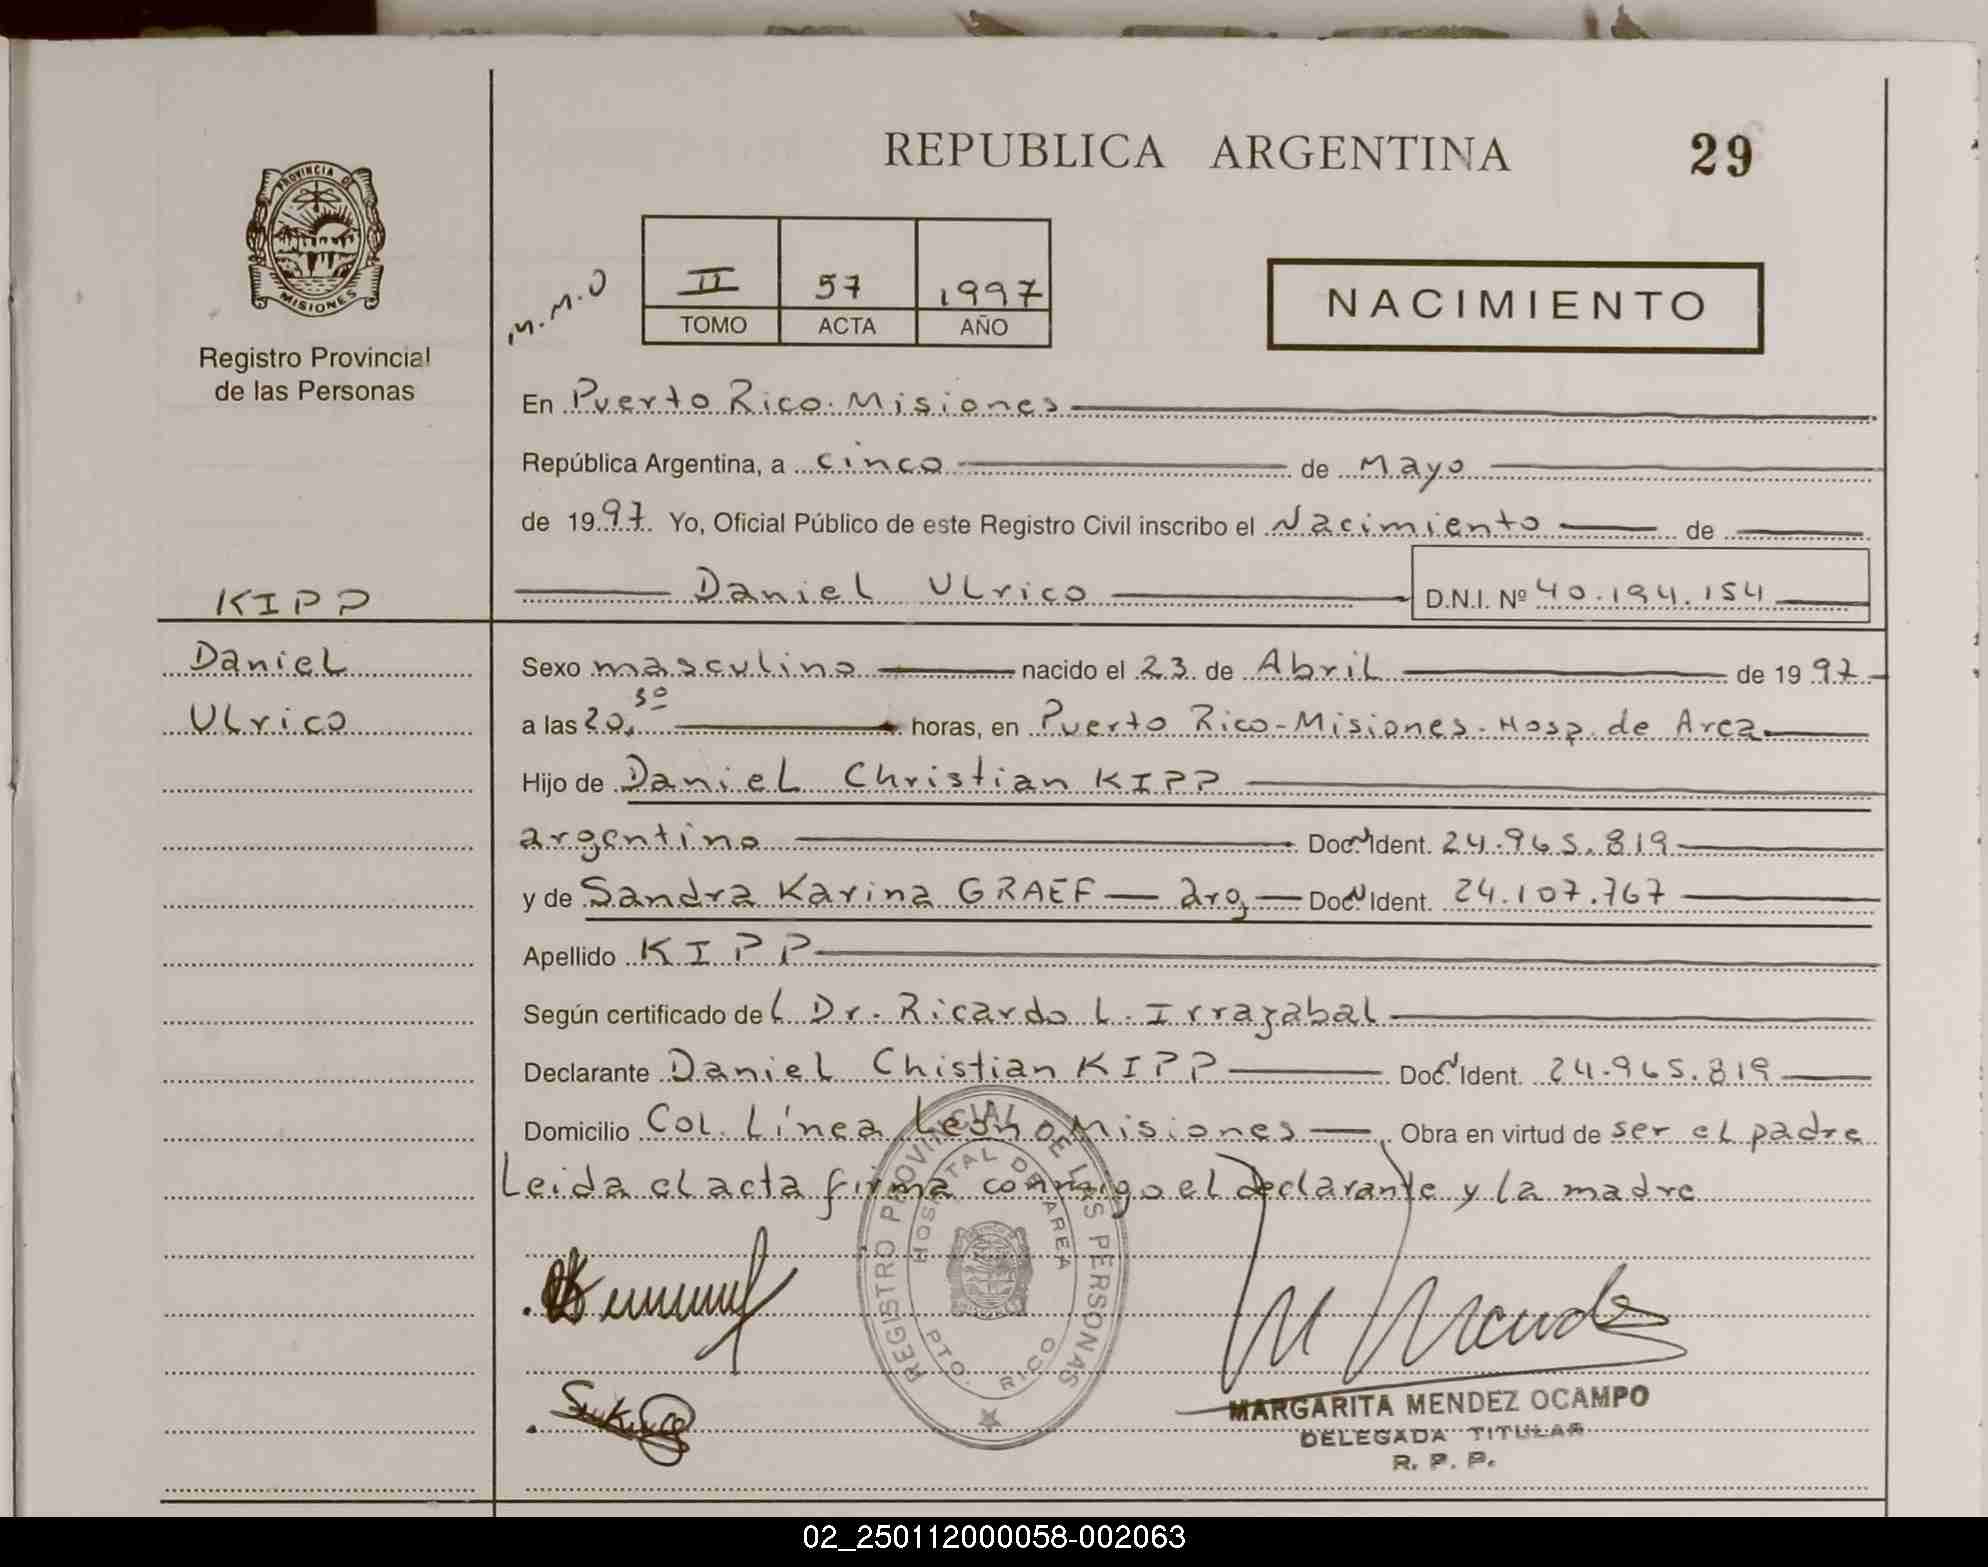 REPUBLICA ARGENTINA 29
PROVINCIA DE
MISIONES
Registro Provincial
de las Personas
M.M.O
II 57 1997
TOMO ACTA AÑO
NACIMIENTO
En Puerto Rico. Misiones
República Argentina, a cinco de Mayo
de 1997. Yo, Oficial Público de este Registro Civil inscribo el Nacimiento de
KIPP
Daniel Ulrico D.N.I. Nº 40.194.154
Daniel
Sexo masculino nacido el 23 de Abril de 1997
Ulrico
a las 20,30 horas, en Puerto Rico-Misiones-Hosp. de Area
Hijo de Daniel Christian KIPP
argentino Doc. N Ident. 24.965.819
y de Sandra Karina GRAEF - arg - Doc. N Ident. 24.107.767
Apellido KIPP
Según certificado del Dr. Ricardo L. Irrazabal
Declarante Daniel Chistian KIPP Doc. N Ident. 24.965.819
Domicilio Col. Línea León Misiones Obra en virtud de ser el padre
Leida el acta firma conmigo el declarante y la madre
REGISTRO PROVINCIAL DE LAS PERSONAS
HOSPITAL DE AREA
PTO. RICO
MARGARITA MENDEZ OCAMPO
DELEGADA TITULAR
R. P. P.
02_250112000058-002063